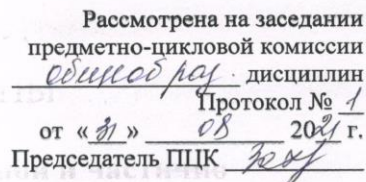 Рассмотрена на заседании
предметно-цикловой комиссии
общеобраз. дисциплин
Протокол № 1
от «31» 08 2021 г.
Председатель ПЦК